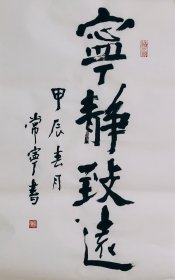 寧靜致遠
甲辰春月
常寧書